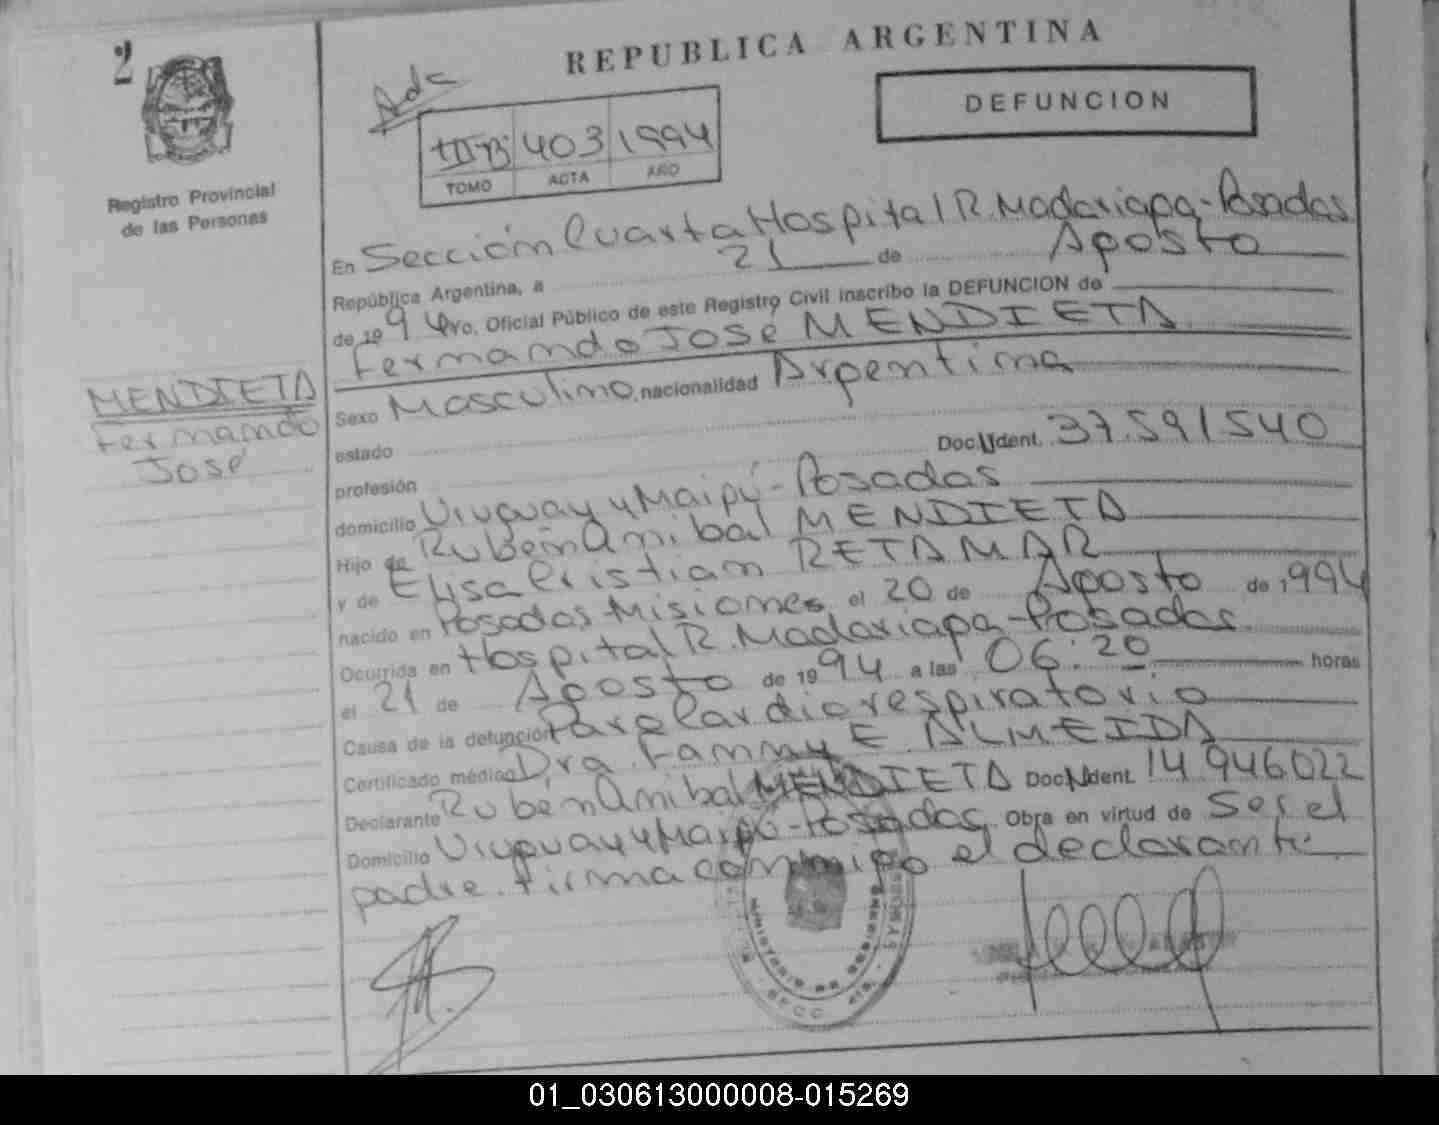 2
REPUBLICA ARGENTINA
Adc
DEFUNCION
403 1994
TOMO ACTA AÑO
Registro Provincial
de las Personas
En Sección Cuarta Hospital R. Madariaga - Posadas
República Argentina, a 21 de Agosto
de 1994 yo, Oficial Público de este Registro Civil inscribo la DEFUNCION de
Fernando José MENDIETA
MENDIETA
Fernando
José
Sexo Masculino, nacionalidad Argentina
estado
profesión Doc. Ident. 37.591540
domicilio Uruguay y Maipú - Posadas
Hijo de Rubén Anibal MENDIETA
y de Elisa Cristian RETAMAR
nacido en Posadas Misiones, el 20 de Agosto de 1994
Ocurrida en Hospital R. Madariaga - Posadas
el 21 de Agosto de 1994 a las 06:20 horas
Causa de la defunción Paro Cardiorespiratorio
Certificado médico Dra. Fanny E. ALMEIDA
Declarante Rubén Anibal MENDIETA Doc. Ident. 14 946.022
Domicilio Uruguay y Maipú - Posadas Obra en virtud de Ser el
padre. firma conmigo el declarante
MINISTERIO DE GOBIERNO
01_030613000008-015269